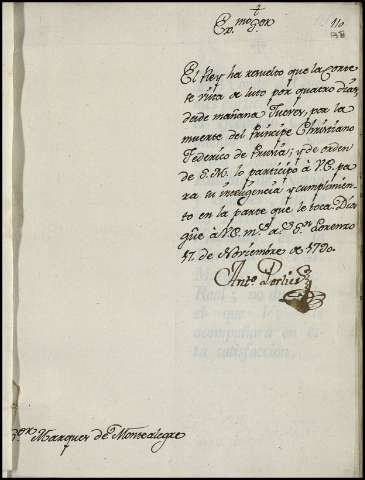 ✝
Ex.mo Sor
110
138
El Rey ha resuelto que la Corte
se vista de luto por quatro dias,
desde mañana Jueves, por la
muerte del Principe Christiano
Federico de Prusia; y de orden
de S. M. lo participo à V.E. pa
ra su inteligencia y cumplimien
to en la parte que le toca. Dios
gūe à V.E. m.s a.s S.n Lorenzo
17. de Noviembre de 1790.
Ant.o Porlier
Sor Marques de Montealegre